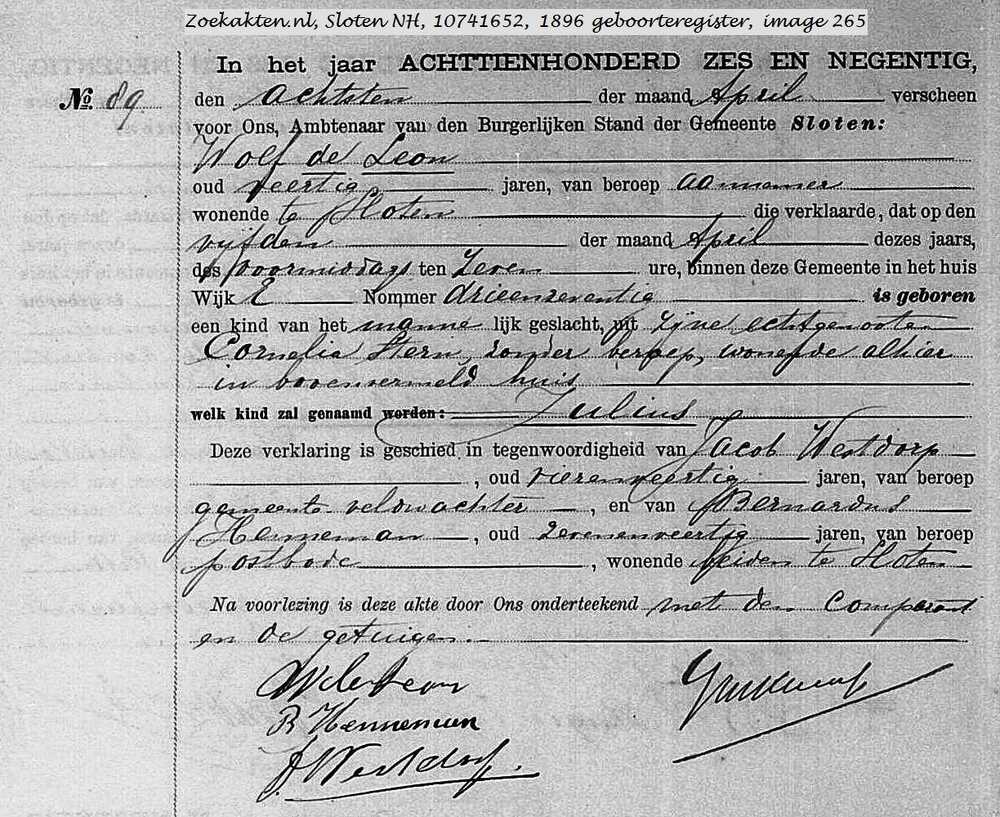 Zoekakten.nl, Sloten NH, 10741652, 1896 geboorteregister, image 265
In het jaar ACHTTIENHONDERD ZES EN NEGENTIG,
No. 89 den achtsten der maand April verscheen
voor Ons, Ambtenaar van den Burgerlijken Stand der Gemeente Sloten:
Wolf de Leon
oud veertig jaren, van beroep aannemer
wonende te Sloten die verklaarde, dat op den
vijfden der maand April dezes jaars,
des voormiddags ten zeven ure, binnen deze Gemeente in het huis
Wijk E Nommer drieenzeventig is geboren
een kind van het manne lijk geslacht, uit zijne echtgenoote
Cornelia Stern, zonder beroep, wonende alhier
in bovenvermeld huis
welk kind zal genaamd worden: Julius
Deze verklaring is geschied in tegenwoordigheid van Jacob Westdorp
, oud vierenveertig jaren, van beroep
gemeente-veldwachter , en van Bernardus
Henneman , oud zevenenveertig jaren, van beroep
postbode , wonende beiden te Sloten
Na voorlezing is deze akte door Ons onderteekend met den comparant
en de getuigen.
W de Leon
B Henneman
J Westdorp.